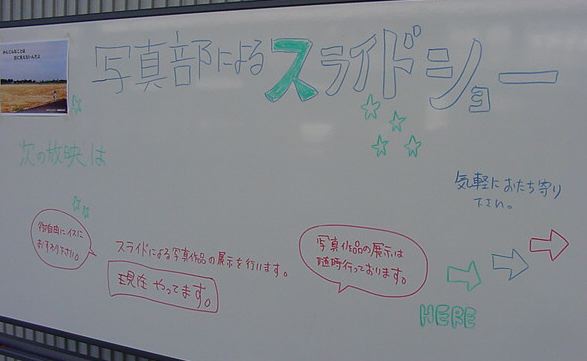 写真部によるスライドショー
次の放映は
気軽におたち守り
下さい。
御自由にイスに
おすわり下さい。
スライドによる写真作品の展示を行います。
現在 やってます。
写真作品の展示は
随時行っております。
HERE